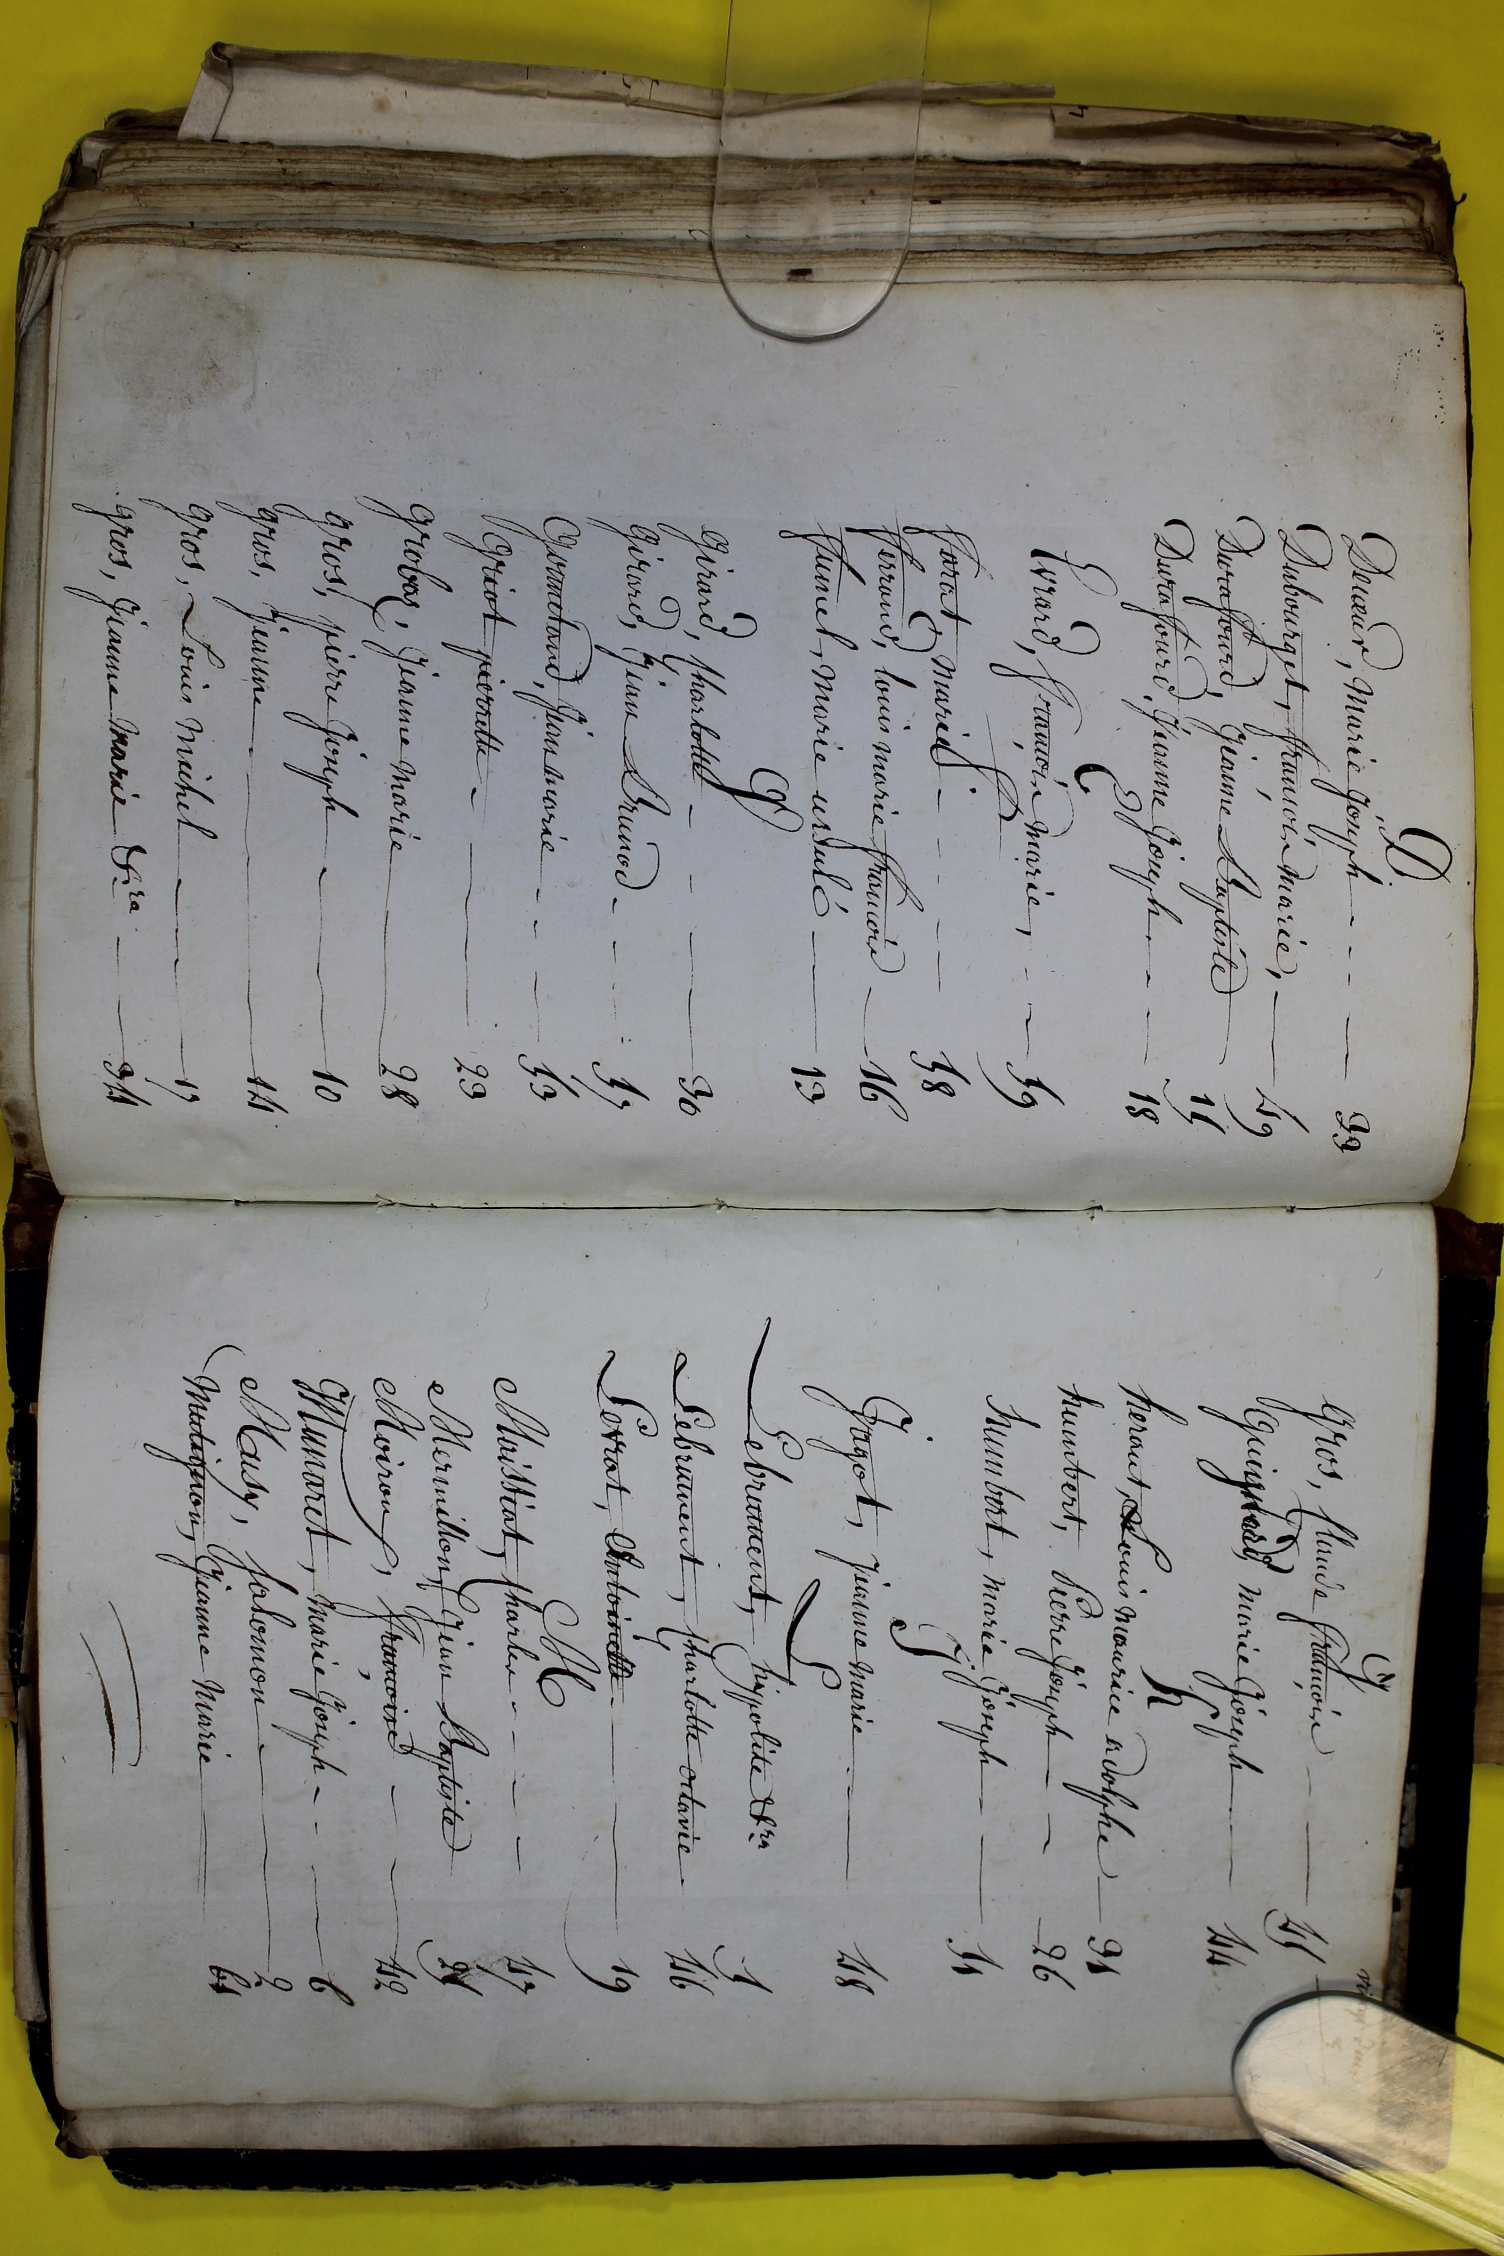 D
Decœur, Marie Joseph - - - 33
Dubourget, françoise Marie, - 49
Durafourd, Jeanne Baptiste - 15
Durafourd, Jeanne Joseph - - - 18
E
Evrard, françoise Marie, - - 59
F
forat Marie - - - - 58
ferrand, louis marie françois - 16
funel, Marie ursule - 13
G
Girard, Charlotte - - - 30
Girard, Jean Brunod - - - 57
Jean Marie - - - 53
Griot pierrette - - 23
Grobas, Jeanne Marie - 28
gros, pierre Joseph - - 10
gros, Jeanne - - 14
gros, Louis Michel - - 17
gros, Jeanne Marie & ra - - 34
G
gros, Claude françoise - - 45
Guignard, Marie Joseph - 44
h
heraut, Louis Maurice adolphe - 31
humbert, pierre Joseph - - 26
humbert, marie Joseph - - 51
J
Jagot, Jeanne Marie - - 48
L
Lebrument, hippolite & ra 5
Lebrument, Charlotte octavie - 46
Levrat, Antoinette - 19
M
Moissiat, Charles - - - - 47
Mermillon, Jean Baptiste
Moiroux, françoise - - 42
Munaret, Marie Joseph - - - 6
Masy, Solomon - 2
Matignon, Jeanne Marie - 61